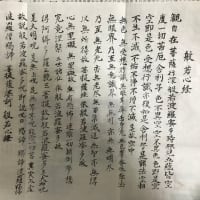 般若心経
観自在菩薩行深般若波羅蜜多時照見五蘊皆空
度一切苦厄舎利子色不異空空不異色色即是
空空即是色受想行識亦復如是舎利子是諸法空相
不生不滅不垢不浄不増不減是故空中
無色無受想行識無眼耳鼻舌身意無色声香味触法
無眼界乃至無意識界無無明亦無無明尽
乃至無老死亦無老死尽無苦集滅道無智亦無得
以無所得故菩提薩埵依般若波羅蜜多故
心無罣礙無罣礙故無有恐怖遠離一切顛倒夢想
究竟涅槃三世諸仏依般若波羅蜜多故得
阿耨多羅三藐三菩提故知般若波羅蜜多
是大明呪是無上呪是無等等呪能除一切苦真実不虚
故説般若波羅蜜多呪即説呪曰羯諦羯諦
波羅羯諦波羅僧羯諦菩提薩婆訶般若心経